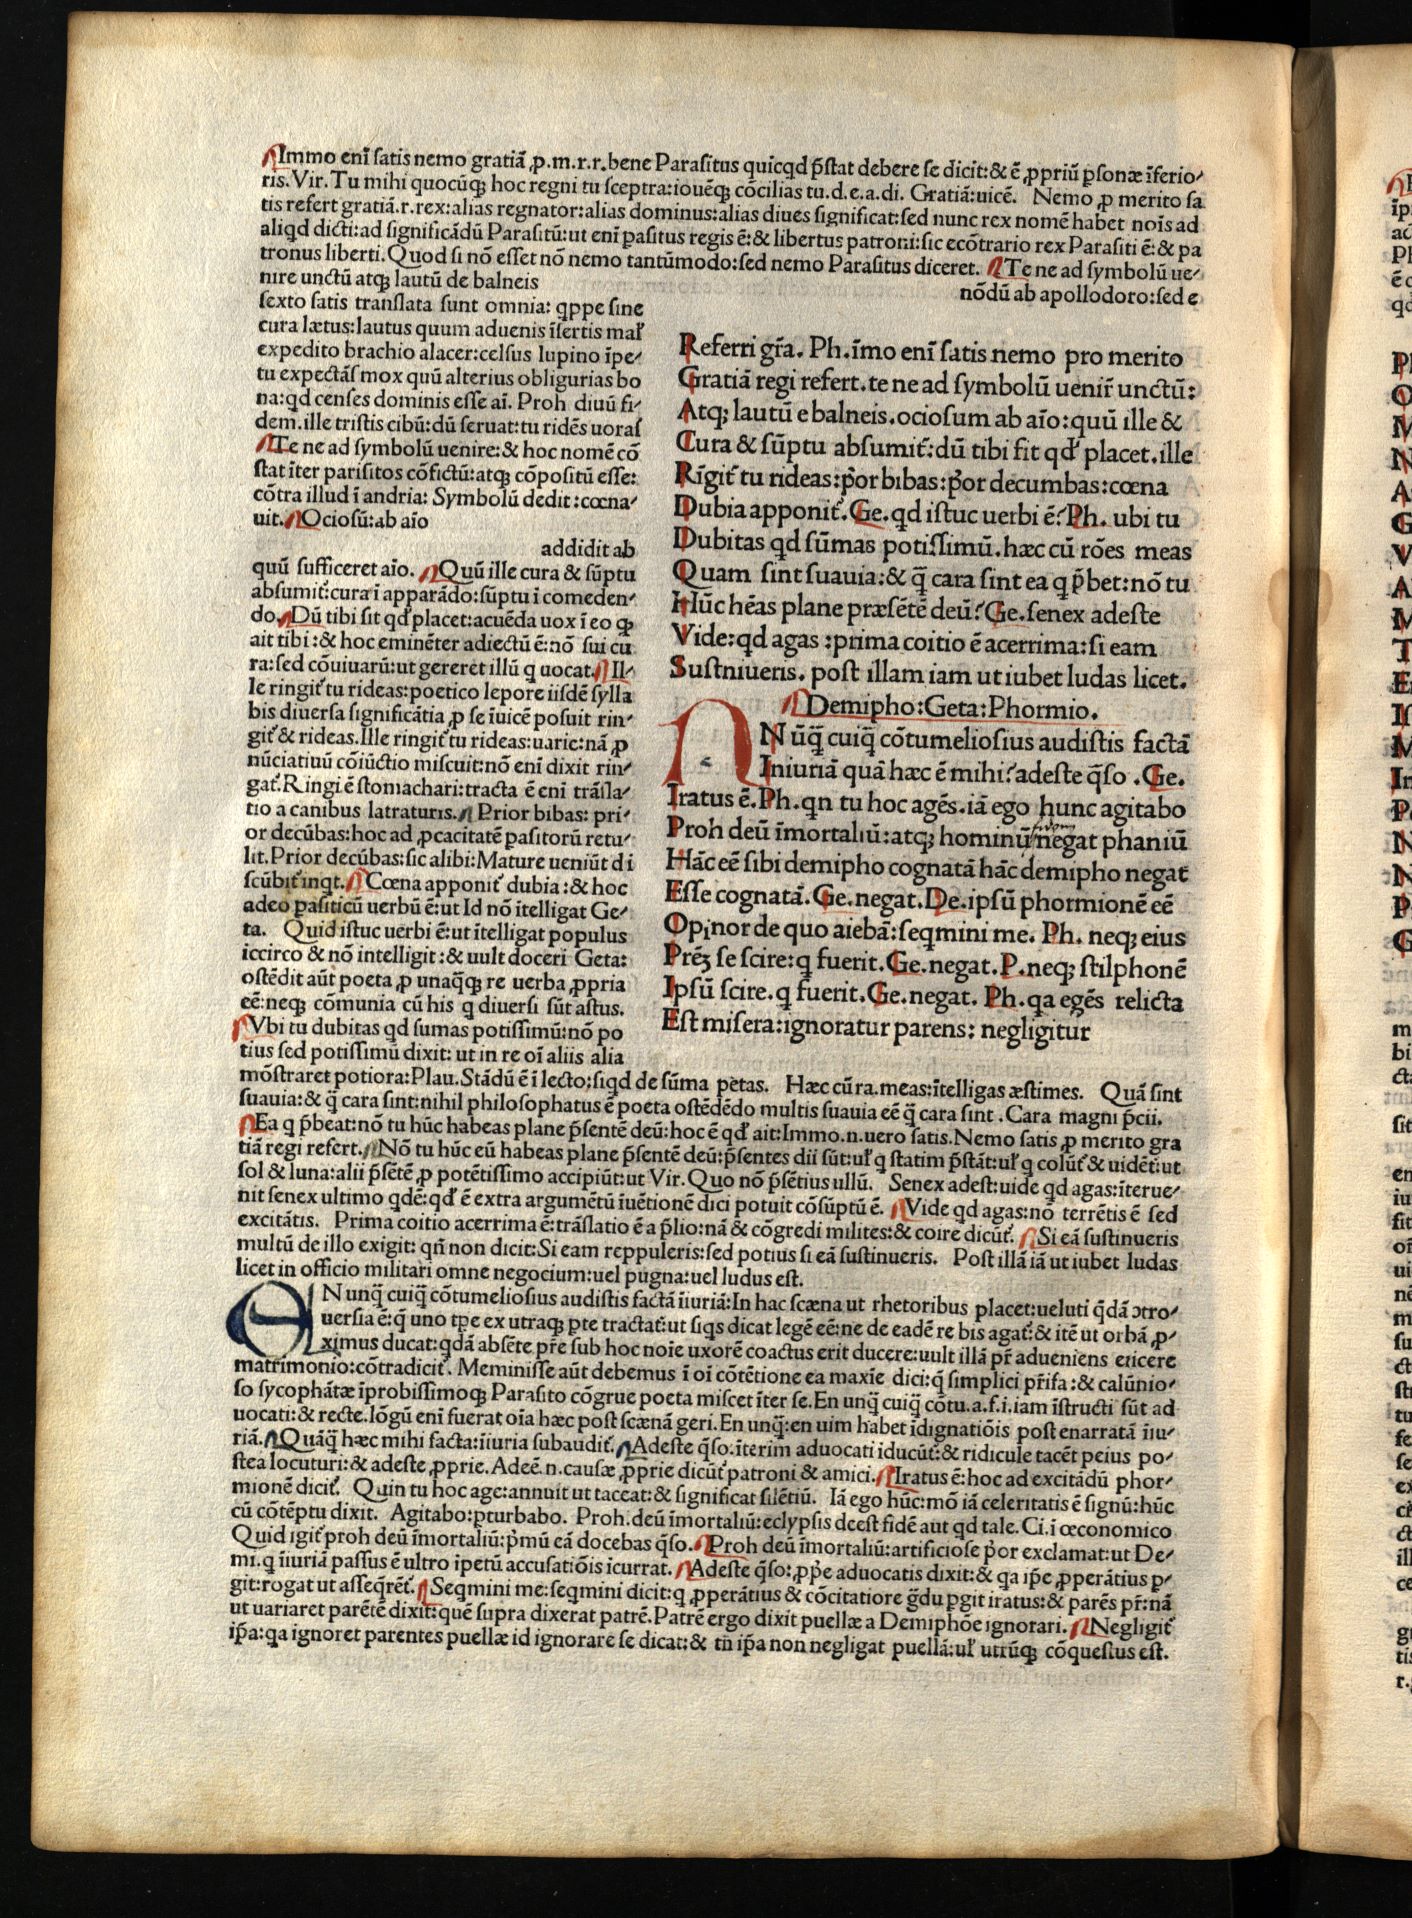 Immo enī satis nemo gratiā ꝓ.m.r.r.bene Parasitus quicqd p̄stat debere se dicit:& ē ꝓpriū ꝑsonæ īferio/
ris.Vir.Tu mihi quocūqꝫ hoc regni tu sceptra:iouēqꝫ cōcilias tu.d.e.a.di. Gratiā:uicē. Nemo ꝓ merito sa
tis refert gratiā.r.rex:alias regnator:alias dominus:alias diues significat:sed nunc rex nomē habet nois ad
aliqd dicti:ad significādū Parasitū:ut enī ꝑasitus regis ē:& libertus patroni:sic ecōtrario rex Parasiti ē:& pa
tronus liberti.Quod si nō esset nō nemo tantūmodo:sed nemo Parasitus diceret. Te ne ad symbolū ue/
nire unctū atqꝫ lautū de balneis
nōdū ab apollodoro:sed e
sexto satis translata sunt omnia: qppe sine
cura lætus:lautus quum aduenis īsertis mal̕
expedito brachio alacer:celsus lupino īpe/
tu expectās mox quū alterius obligurias bo
na:qd censes dominis esse aī. Proh diuū fi/
dem.ille tristis cibū:dū seruat:tu ridēs uoras
Te ne ad symbolū uenire:& hoc nomē cō
stat īter parisitos cōfictū:atqꝫ cōpositū esse:
cōtra illud ī andria: Symbolū dedit:cœna/
uit. Ociosū:ab aīo
addidit ab
quū sufficeret aīo. Quū ille cura & sūptu
absumit̕:cura ī apparādo:sūptu ī comeden/
do. Dū tibi sit qd̕ placet:acuēda uox ī eo qꝫ
ait tibi:& hoc eminēter adiectū ē:nō sui cu
ra:sed cōuiuarū:ut gereret illū q uocat. Il/
le ringit̕ tu rideas:poetico lepore iisdē sylla
bis diuersa significātia ꝓ se īuicē posuit rin/
git̕ & rideas.Ille ringit̕ tu rideas:uarie:nā ꝓ
nūciatiuū cōiūctio miscuit:nō enī dixit rin/
gat̕.Ringi ē stomachari:tracta ē enī trāsla/
tio a canibus latraturis. Prior bibas: pri/
or decūbas:hoc ad ꝓcacitatē ꝑasitorū retu/
lit.Prior decūbas:sic alibi:Mature ueniūt di
scūbit̕ inqt. Cœna apponit̕ dubia:& hoc
adeo ꝑasiticū uerbū ē:ut Id nō ītelligat Ge/
ta. Quid istuc uerbi ē:ut ītelligat populus
iccirco & nō intelligit:& uult doceri Geta:
ostēdit aūt poeta ꝓ unaq̄qꝫ re uerba ꝓpria
eē:neqꝫ cōmunia cū his q diuersi sūt astus.
Vbi tu dubitas qd sumas potissimū:nō po
tius sed potissimū dixit: ut in re oī aliis alia
Referri gr̄a. Ph.īmo enī satis nemo pro merito
Gratiā regi refert.te ne ad symbolū uenir̄ unctū:
Atqꝫ lautū e balneis.ociosum ab aīo:quū ille &
Cura & sūptu absumit̕:dū tibi fit qd̕ placet.ille
Rīgit̕ tu rideas:p̄or bibas:p̄or decumbas:cœna
Dubia apponit̕.Ge.qd istuc uerbi ē? Ph. ubi tu
Dubitas qd sūmas potissimū.hæc cū rōes meas
Quam sint suauia:& q̄ cara sint ea q p̄bet:nō tu
Hūc hēas plane præsētē deū? Ge.senex adeste
Vide:qd agas :prima coitio ē acerrima:si eam
Sustniueris. post illam iam ut iubet ludas licet.
Demipho:Geta:Phormio.
N ūq̄ cuiq̄ cōtumeliosius audistis factā
Iniuriā quā hæc ē mihi? adeste q̄so .Ge.
Iratus ē.Ph.qn tu hoc agēs.iā ego hunc agitabo
Proh deū īmortaliū:atqꝫ hominū negat phaniū
Hāc eē sibi demipho cognatā hāc demipho negat
Esse cognatā. Ge.negat.De.ipsū phormionē eē
Opinor de quo aiebā:seqmini me. Ph. neqꝫ eius
Prēꝫ se scire:q fuerit.Ge.negat.P.neqꝫ stilphonē
Ipsū scire.q fuerit.Ge.negat. Ph.qa egēs relicta
Est misera:ignoratur parens: negligitur
mōstraret potiora:Plau.Stādū ē ī lecto;siqd de sūma petas. Hæc cū ra.meas:ītelligas æstimes. Quā sint
suauia:& q̄ cara sint:nihil philosophatus ē poeta ostēdēdo multis suauia eē q̄ cara sint .Cara magni p̄cii.
Ea q p̄beat:nō tu hūc habeas plane p̄sentē deū:hoc ē qd̕ ait:Immo.n.uero satis.Nemo satis ꝓ merito gra
tiā regi refert. Nō tu hūc eū habeas plane p̄sentē deū:p̄sentes dii sūt:ul̕ q statim p̄stāt:ul̕ q colūt̕ & uidēt̕:ut
sol & luna:alii p̄sētē ꝓ potētissimo accipiūt:ut Vir.Quo nō p̄sētius ullū. Senex adest:uide qd agas:īterue/
nit senex ultimo qdē:qd̕ ē extra argumētū īuētionē dici potuit cōsūptū ē. Vide qd agas:nō terrētis ē sed
excitātis. Prima coitio acerrima ē:trāslatio ē a p̄lio:nā & cōgredi milites:& coire dicūt̕. Si eā sustinueris
multū de illo exigit: qn̄ non dicit:Si eam reppuleris:sed potius si eā sustinueris. Post illā iā ut iubet ludas
licet in officio militari omne negocium:uel pugna:uel ludus est.
N unq̄ cuiq̄ cōtumeliosius audistis factā īiuriā:In hac scæna ut rhetoribus placet:ueluti q̄dā ↄtro/
uersia ē:q̄ uno tꝑe ex utraqꝫ ꝑte tractat̕:ut siqs dicat legē eē:ne de eadē re bis agat̕:& itē ut orbā ꝓ/
ximus ducat:qdā absēte pr̄e sub hoc noīe uxorē coactus erit ducere:uult illā pr̄ adueniens eiicere
matrimonio:cōtradicit̕. Meminisse aūt debemus ī oī cōtētione ea maxīe dici:q̄ simplici pr̄ifa:& calūnio/
so sycophātæ īprobissimoqꝫ Parasito cōgrue poeta miscet īter se.En unq̄ cuiq̄ cōtu.a.f.i.iam īstructi sūt ad
uocati:& recte.lōgū enī fuerat oīa hæc post scænā geri.En unq̄:en uim habet īdignatiōis post enarratā īiu/
riā. Quāq̄ hæc mihi facta:īiuria subaudit̕. Adeste q̄so.īterim aduocati īducūt̕:& ridicule tacēt peius po/
stea locuturi:& adeste ꝓprie.Adeē.n.causæ ꝓprie dicūt̕ patroni & amici. Iratus ē:hoc ad excitādū phor/
mionē dicit̕. Quin tu hoc age:annuit ut taceat:& significat silētiū. Iā ego hūc:mō iā celeritatis ē signū:hūc
cū cōtēptu dixit. Agitabo:ꝑturbabo. Proh.deū īmortaliū:eclypsis deest fidē aut qd tale.Ci.ī œconomico
Quid igit̕ proh deū īmortaliū:p̄mū eā docebas q̄so. Proh deū īmortaliū:artificiose p̄or exclamat:ut De/
mi.q īiuriā passus ē ultro īpetū accusatiōis īcurrat. Adeste q̄so:ꝓp̄e aduocatis dixit:& qa ip̄e ꝓperātius ꝑ/
git:rogat ut asseq̄rēt̕. Seqmini me:seqmini dicit:q ꝓperātius & cōcitatiore g̃du ꝑgit iratus:& parēs pr̄:nā
ut uariaret parētē dixit:quē supra dixerat patrē.Patrē ergo dixit puellæ a Demiphōe ignorari. Negligit̕
ip̄a:qa ignoret parentes puellæ id ignorare se dicat:& tn̄ ip̄a non negligat puellā:ul̕ utrūqꝫ cōquestus est.